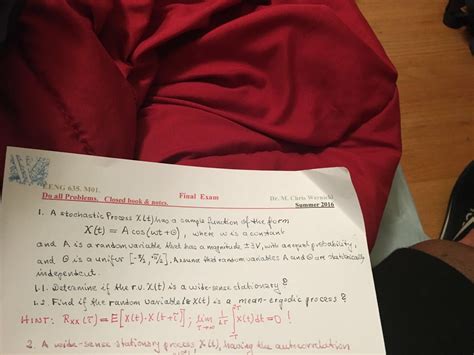 EENG 635. M01.
Final Exam
Dr. M. Chris Wernicki
Do all Problems. Closed book & notes.
Summer 2016
1. A stochastic Process X(t) has a sample function of the form
X(t) = A cos(ωt + Θ), where ω is a constant
and A is a random variable that has a magnitude ±3V, with an equal probability,
and Θ is a unifor [-π/2, π/2]. Assume that random variables A and Θ are statistically
independent.
1.1. Determine if the r.v. X(t) is a wide-sense stationary?
1.2 Find if the random variable X(t) is a mean-ergodic process?
HINT: Rxx(τ) = E[X(t)·X(t+τ)]; lim T→∞ 1/2T ∫-T T X(t)dt = 0!
2. A wide-sense stationary process, X(t), having the autocorrelation